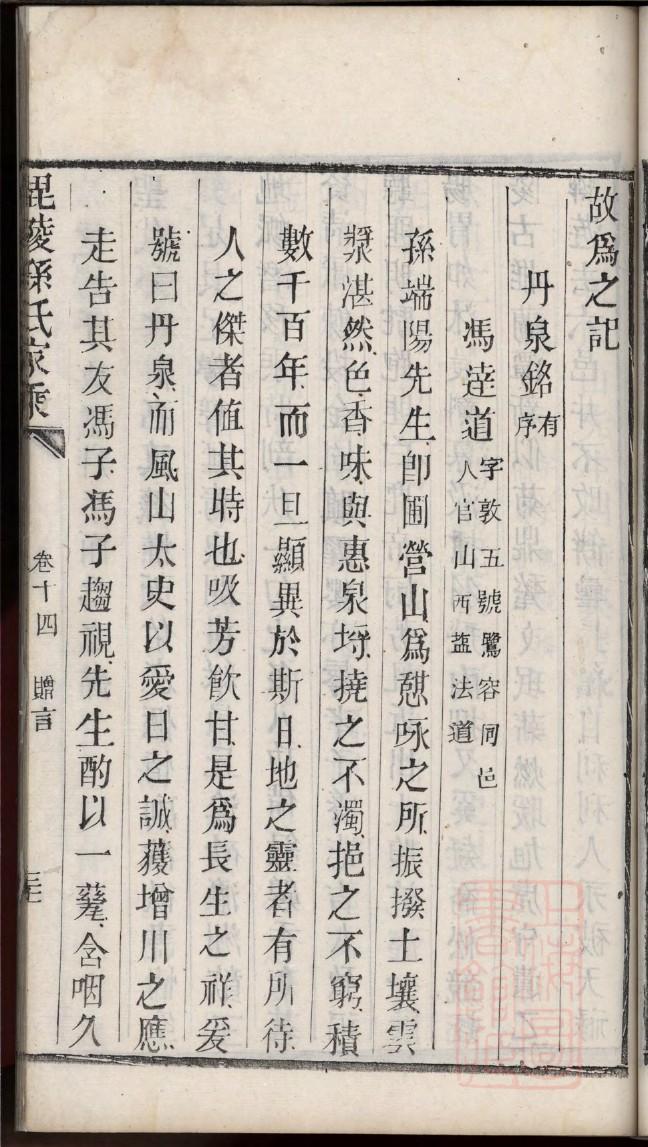 故爲之記
丹泉銘有序
馮達道字敦五號鷺容同邑人官山西盬法道
孫端陽先生卽圃營山爲憇咏之所振撥土壤雲
漿湛然色香味與惠泉埒撓之不濁挹之不窮積
數千百年而一旦顯異於斯日地之靈者有所待
人之傑者值其時也吸芳飮甘是爲長生之祥爰
號曰丹泉而風山太史以愛日之誠蒦增川之應
走告其友馮子馮子趨視先生酌以一蕘含咽久
毘陵孫氏家乘
卷十四
贈言